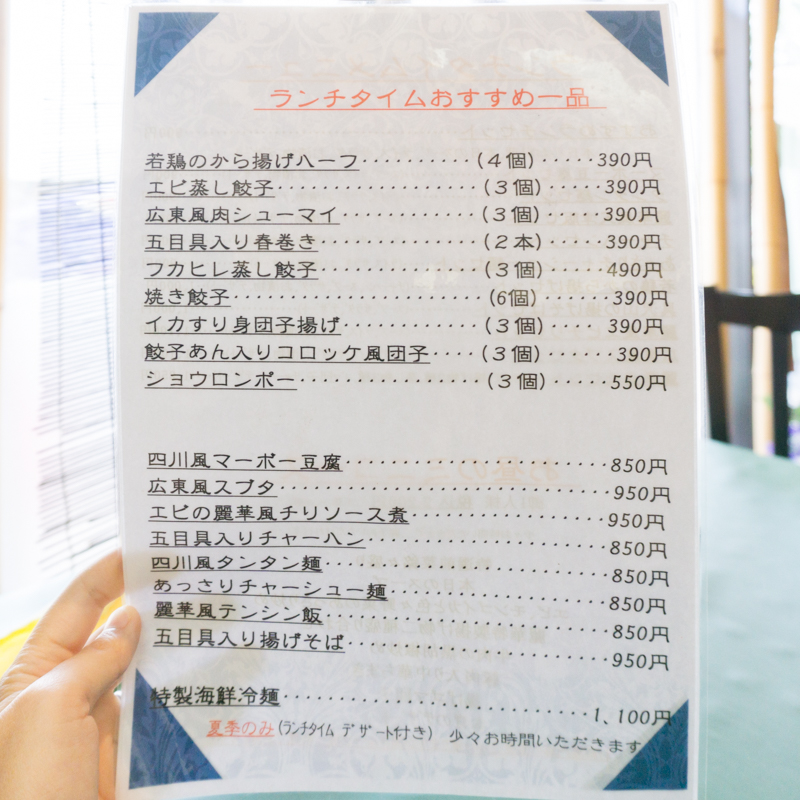 ランチタイムおすすめ一品
若鶏のから揚げハーフ··········(４個)·····390円
エビ蒸し餃子··················(３個)·····390円
広東風肉シューマイ············(３個)·····390円
五目具入り春巻き··············(２本)·····390円
フカヒレ蒸し餃子··············(３個)·····490円
焼き餃子······················(6個)······390円
イカすり身団子揚げ············(３個)·····390円
餃子あん入りコロッケ風団子····(３個)······390円
ショウロンポー················(３個)·····550円
四川風マーボー豆腐························850円
広東風スブタ······························950円
エビの麗華風チリソース煮··················950円
五目具入りチャーハン······················850円
四川風タンタン麺··························850円
あっさりチャーシュー麺····················850円
麗華風テンシン飯··························850円
五目具入り揚げそば························950円
特製海鮮冷麺····························1,100円
夏季のみ(ランチタイム デザート付き) 少々お時間いただきます